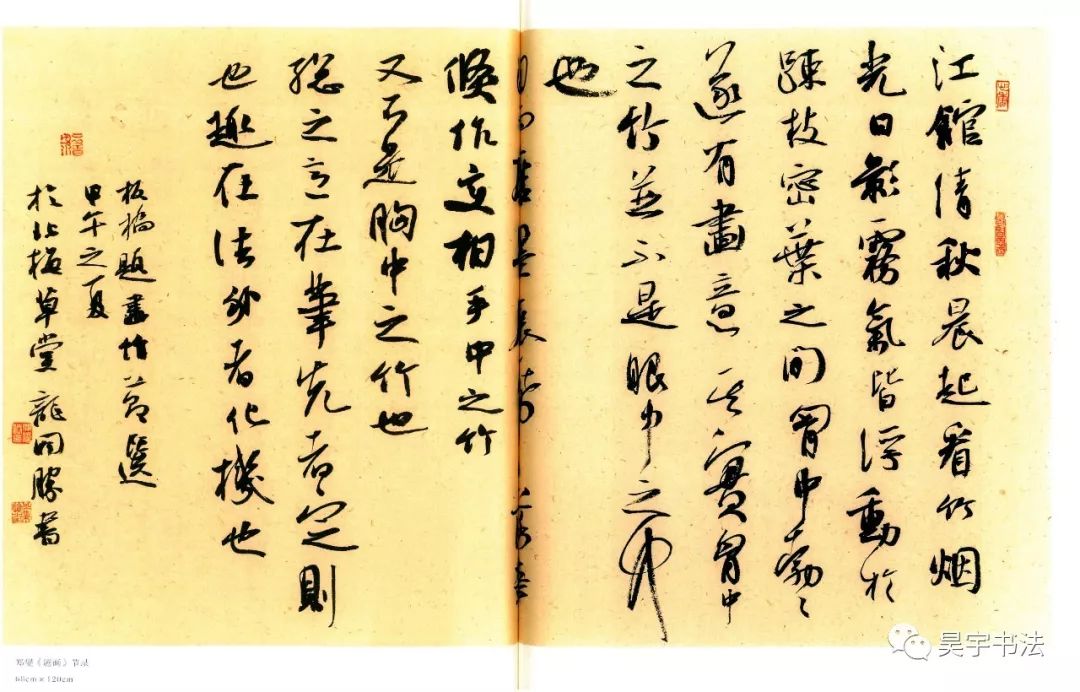 江館清秋晨起看竹烟
光日影霧氣皆浮動於
疎枝密葉之間胷中勃〻
遂有畫意其實胷中
之竹並不是眼中之竹
也
倏作变相手中之竹
又不是胸中之竹也
總之意在筆先者定則
也趣在法外者化機也
板橋題畫竹節選
甲午之夏
於梅草堂龍開勝書
郑燮《题画》节录
68cm×120cm
昊宇书法